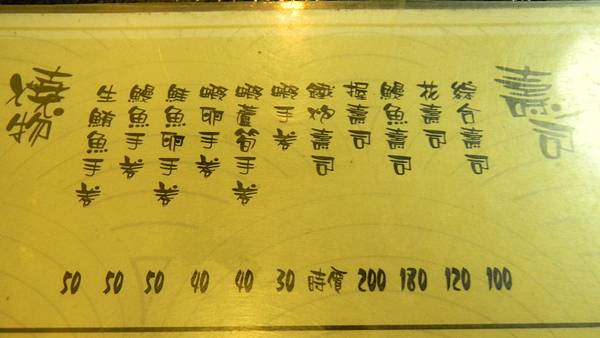 壽司
綜合壽司 100
花壽司 120
鰻魚壽司 180
握壽司 200
壽司 時價
蝦手卷 30
蝦蘆筍手卷 40
蝦卵手卷 40
鮭魚卵手卷 50
鰻魚手卷 50
生鮪魚手卷 50
燒物